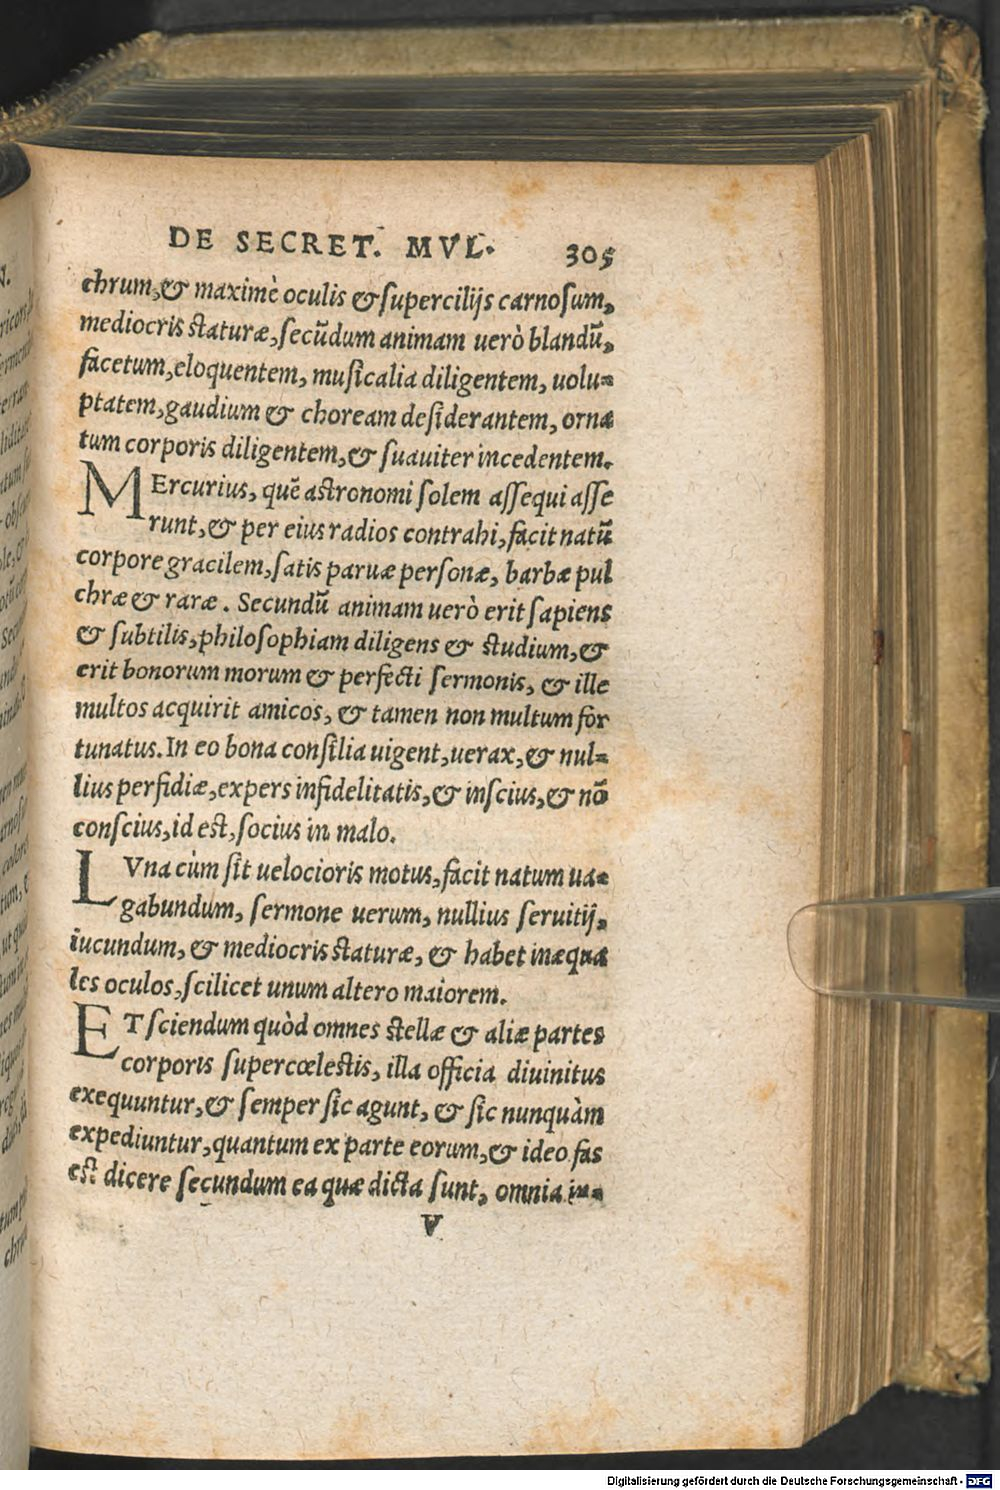 DE SECRET. MVL. 305
chrum, & maximè oculis & supercilijs carnosum,
mediocris staturæ, secũdum animam uerò blandũ,
facetum, eloquentem, musicalia diligentem, uolu=
ptatem, gaudium & choream desiderantem, orna
tum corporis diligentem, & suauiter incedentem.
MErcurius, quẽ astronomi solem assequi asse
runt, & per eius radios contrahi, facit natũ
corpore gracilem, satis paruæ personæ, barbæ pul
chræ & raræ. Secundũ animam uerò erit sapiens
& subtilis, philosophiam diligens & studium, &
erit bonorum morum & perfecti sermonis, & ille
multos acquirit amicos, & tamen non multum for
tunatus. In eo bona consilia uigent, uerax, & nul=
lius perfidiæ, expers infidelitatis, & inscius, & nõ
conscius, id est, socius in malo.
LVna cùm sit uelocioris motus, facit natum ua=
gabundum, sermone uerum, nullius seruitij,
iucundum, & mediocris staturæ, & habet inæqua
les oculos, scilicet unum altero maiorem.
ET sciendum quòd omnes stellæ & aliæ partes
corporis supercœlestis, illa officia diuinitus
exequuntur, & semper sic agunt, & sic nunquàm
expediuntur, quantum ex parte eorum, & ideo fas
est dicere secundum ea quæ dicta sunt, omnia in=
V
Digitalisierung gefördert durch die Deutsche Forschungsgemeinschaft - DFG